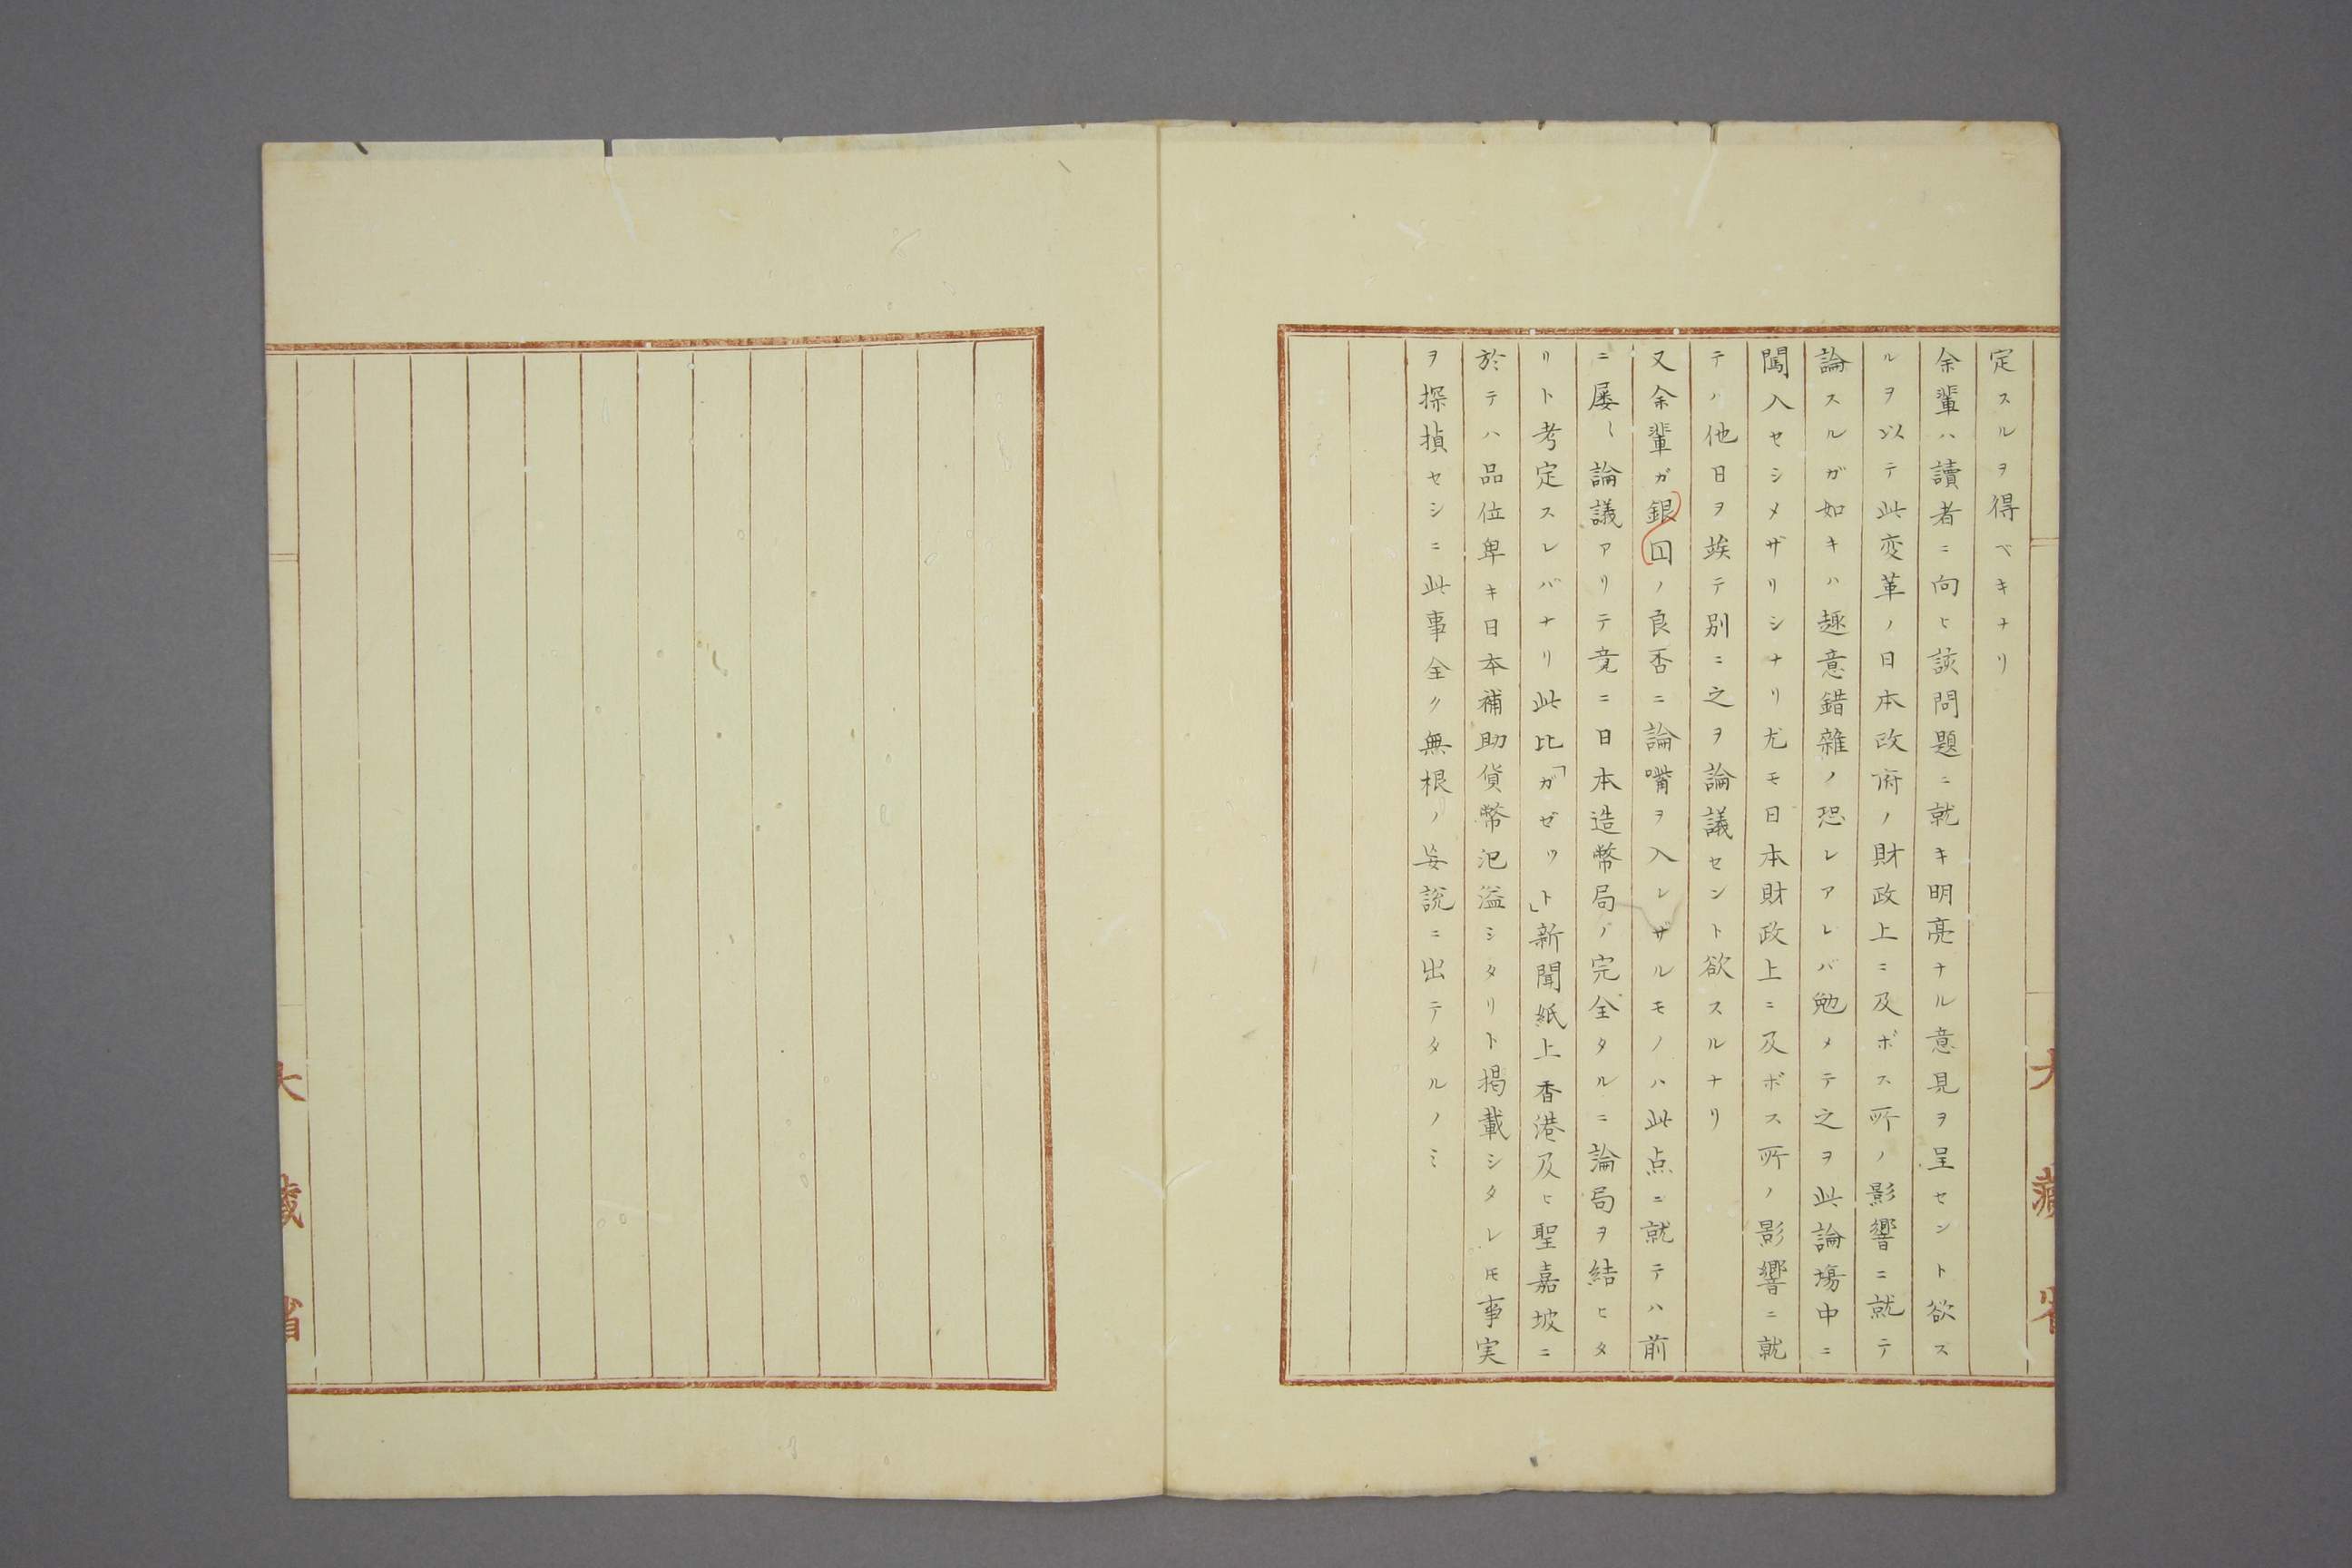 定スルヲ得ベキナリ
余輩ハ讀者ニ向ヒ該問題ニ就キ明亮ナル意見ヲ呈セント欲ス
ルヲ以テ此変革ノ日本政府ノ財政上ニ及ボス所ノ影響ニ就テ
論スルガ如キハ趣意錯雜ノ恐レアレバ勉メテ之ヲ此論場中ニ
闖入セシメザリシナリ尤モ日本財政上ニ及ボス所ノ影響ニ就
テハ他日ヲ竢テ別ニ之ヲ論議セント欲スルナリ
又余輩ガ銀ノ良否ニ論嘴ヲ入レザルモノハ此点ニ就テハ前
ニ屡〻論議アリテ竟ニ日本造幣局ノ完全タルニ論局ヲ結ヒタ
リト考定スレバナリ此比「ガゼット」新聞紙上香港及ヒ聖嘉坡ニ
於テハ品位卑キ日本補助貨幣氾溢シタリト掲載シタレ𪜈事実
ヲ探偵セシニ此事全ク無根ノ妄説ニ出テタルノミ
大藏省
大藏省